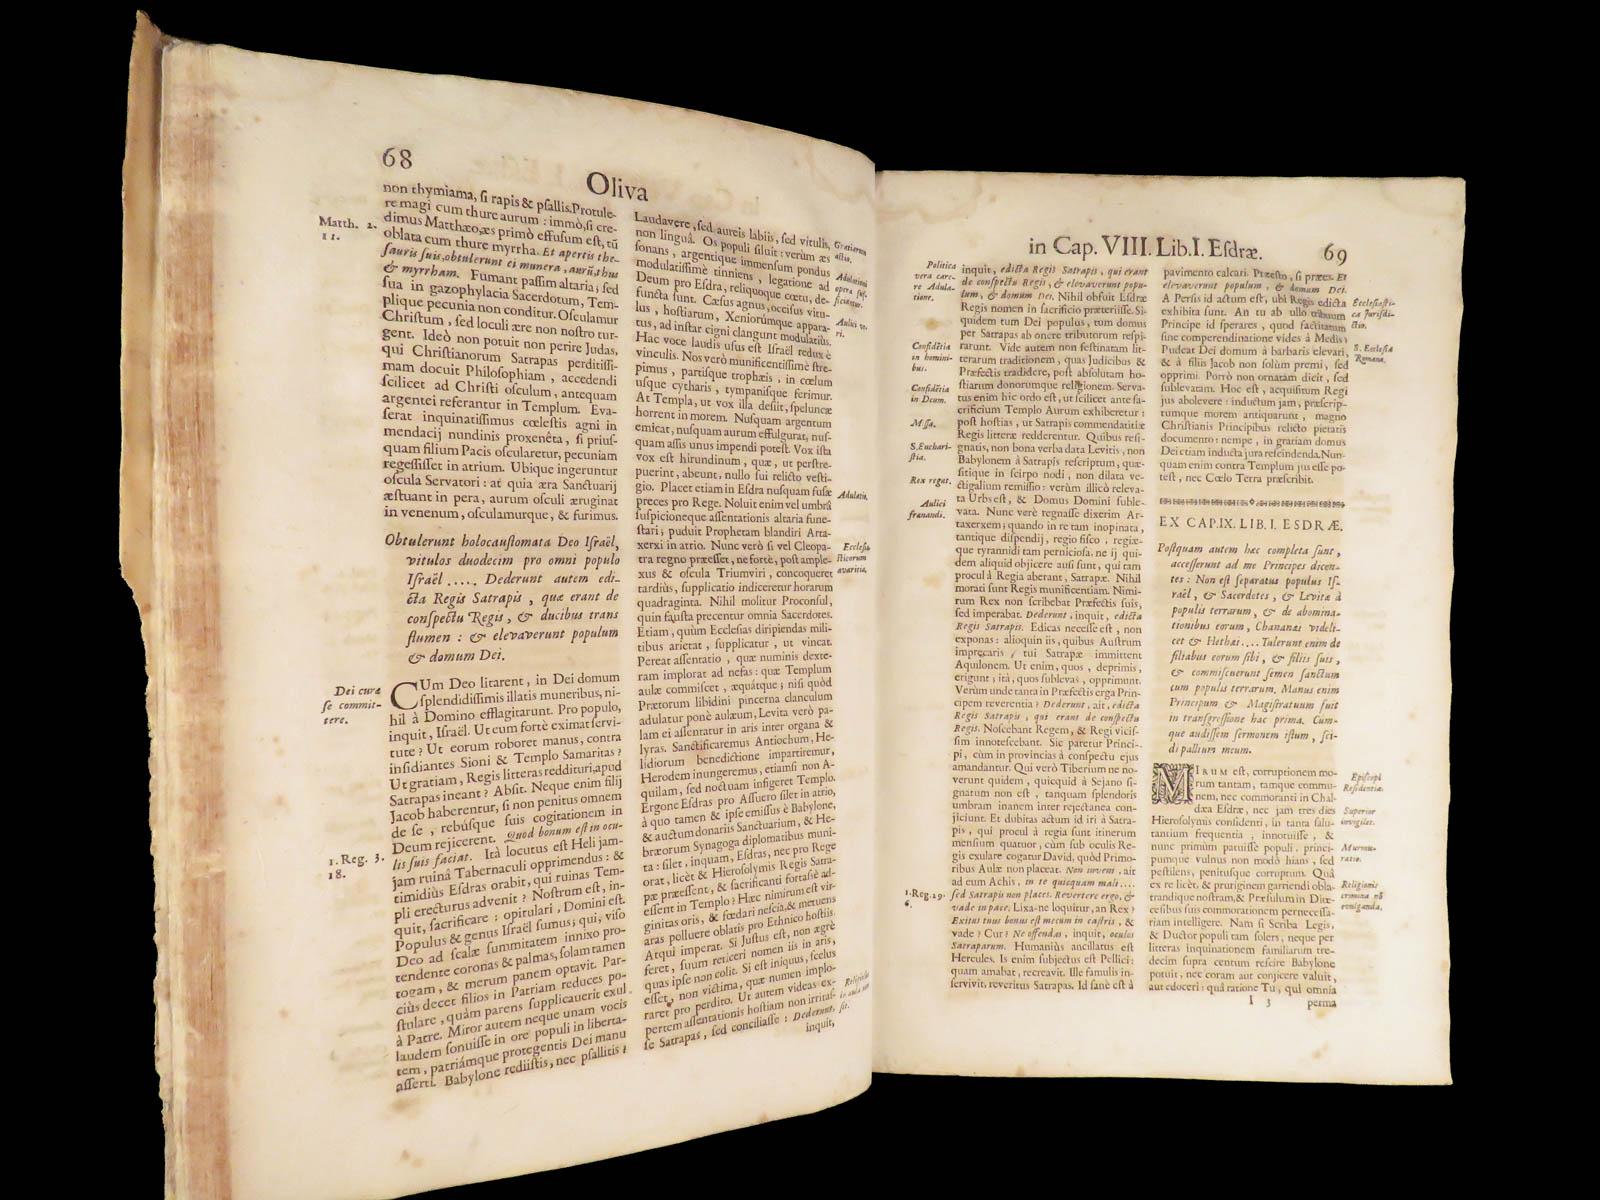 68
Oliva
Matth. 2.
11.
non thymiama, ſi rapis & pſallis. Protule-
re magi cum thure aurum : immò, ſi cre-
dimus Matthæo, æs primò effuſum eſt, tũ
oblata cum thure myrrha. Et apertis the-
ſauris ſuis, obtulerunt ei munera, aurũ, thus
& myrrham. Fumant paſſim altaria ; ſed
ſua in gazophylacia Sacerdotum, Tem-
plique pecunia non conditur. Oſculamur
Chriſtum, ſed loculi ære non noſtro tur-
gent. Ideò non potuit non perire Judas,
qui Chriſtianorum Satrapas perditiſſi-
mam docuit Philoſophiam, accedendi
ſcilicet ad Chriſti oſculum, antequam
argentei referantur in Templum. Eva-
ſerat inquinatiſſimus cœleſtis agni in
mendacij nundinis proxenêta, ſi priuſ-
quam filium Pacis oſcularetur, pecuniam
regeſſiſſet in atrium. Ubique ingeruntur
oſcula Servatori : at quia æra Sanctuarij
æſtuant in pera, aurum oſculi æruginat
in venenum, oſculamurque, & furimus.
Obtulerunt holocauſtomata Deo Iſraël,
vitulos duodecim pro omni populo
Iſraël ..... Dederunt autem edi-
cta Regis Satrapis, quæ erant de
conſpectu Regis, & ducibus trans
flumen : & elevaverunt populum
& domum Dei.
Dei curæ
ſe commit-
tere.
CUm Deo litarent, in Dei domum
ſplendidiſſimis illatis muneribus, ni-
hil à Domino efflagitarunt. Pro populo,
inquit, Iſraël. Ut eum fortè eximat ſervi-
tute ? Ut eorum roboret manus, contra
inſidiantes Sioni & Templo Samaritas ?
Ut gratiam, Regis litteras reddituri, apud
Satrapas ineant ? Abſit. Neque enim filij
Jacob haberentur, ſi non penitus omnem
de ſe, rebúſque ſuis cogitationem in
Deum rejicerent. Quod bonum eſt in ocu-
lis ſuis faciat. Ità locutus eſt Heli jam-
1. Reg. 3.
18.
jam ruinâ Tabernaculi opprimendus : &
timidiùs Eſdras orabit, qui ruinas Tem-
pli erecturus advenit ? Noſtrum eſt, in-
quit, ſacrificare : opitulari, Domini eſt.
Populus & genus Iſraël ſumus ; qui, viſo
Deo ad ſcalæ ſummitatem innixo pro-
tendente coronas & palmas, ſolam tamen
togam, & merum panem optavit. Par-
ciùs decet filios in Patriam reduces po-
ſtulare, quàm parens ſupplicauerit exul
à Patre. Miror autem neque unam vocis
laudem ſonuiſſe in ore populi in liberta-
tem, patriámque protegentis Dei manu
aſſerti. Babylone rediiſtis, nec pſallitis ?
Laudavere, ſed aureis labiis, ſed vitulis,
non linguâ. Os populi ſiluit : verùm æs
ſonans, argentique immenſum pondus
modulatiſſimè tinniens, legatione ad
Deum pro Eſdra, reliquoque cœtu, de-
functa ſunt. Cæſus agnus, occiſus vitu-
lus, hoſtiarum, Xeniorúmque appara-
tus, ad inſtar cigni clangunt modulatiùs.
Hac voce laudis uſus eſt Iſraël redux è
vinculis. Nos verò munificentiſſimè ſtre-
pimus, partiſque trophæis, in cœlum
uſque cytharis, tympaniſque ferimur.
At Templa, ut vox illa deſiit, ſpeluncæ
horrent in morem. Nuſquam argentum
emicat, nuſquam aurum effulgurat, nuſ-
quam aſſis unus impendi poteſt. Vox iſta
vox eſt hirundinum, quæ, ut perſtre-
puerint, abeunt, nullo ſui relicto veſti-
gio. Placet etiam in Eſdra nuſquam fuſæ
preces pro Rege. Noluit enim vel umbrâ
ſuſpicioneque aſſentationis altaria fune-
ſtari ; puduit Prophetam blandiri Arta-
xerxi in atrio. Nunc verò ſi vel Cleopa-
tra regno præeſſet, ne fortè, poſt ample-
xus & oſcula Triumviri, concoqueret
tardiùs, ſupplicatio indiceretur horarum
quadraginta. Nihil molitur Proconſul,
quin fauſta precentur omnia Sacerdotes.
Etiam, quùm Eccleſias diripiendas mili-
tibus arietat, ſupplicatur, ut vincat.
Pereat aſſentatio, quæ numinis dexte-
ram implorat ad nefas : quæ Templum
aulæ commiſcet, æquátque ; niſi quòd
Prætorum libidini pincerna clanculum
adulatur ponè aulæum, Levita verò pa-
lam ei aſſentatur in aris inter organa &
lyras. Sanctificaremus Antiochum, He-
lidiorum benedictione impartiremur,
Herodem inungeremus, etiamſi non A-
quilam, ſed noctuam infigeret Templo.
Ergone Eſdras pro Aſſuero ſilet in atrio,
à quo tamen & ipſe emiſſus è Babylone,
& auctum donariis Sanctuarium, & He-
bræorum Synagoga diplomatibus muni-
ta : ſilet, inquam, Eſdras, nec pro Rege
orat, licèt & Hieroſolymis Regis Satra-
pæ præeſſent, & ſacrificanti fortaſſè ad-
eſſent in Templo ? Hæc nimirum eſt vir-
ginitas oris, & fœdari neſcia, & metuens
aras polluere oblatis pro Ethnico hoſtiis.
Atqui imperat. Si Juſtus eſt, non ægrè
feret, ſuum reticeri nomen iis in aris,
quas ipſe non colit. Si eſt iniquus, ſcelus
eſſet, non victima, quæ numen implo-
raret pro perdito. Ut autem videas ex-
pertem aſſentationis hoſtiam non irritaſ-
ſe Satrapas, ſed conciliaſſe : Dederunt,
inquit,
Gratiarum
actio.
Adulationi
opera ſuf-
ficiantur.
Aulici ve-
ri.
Adulatio.
Eccleſia-
ſticorum
avaritia.
in Cap. VIII. Lib. I. Eſdræ.
69
Politica
vera care-
re Adula-
tione.
Confidētia
in homini-
bus.
Confidētia
in Deum.
Miſſa.
S. Euchari-
ſtia.
Rex regat.
Aulici
frænandi.
1. Reg. 29.
6.
inquit, edicta Regis Satrapis, qui erant
de conſpectu Regis, & elevaverunt popu-
lum, & domum Dei. Nihil obfuit Eſdræ
Regis nomen in ſacrificio præteriiſſe. Si-
quidem tum Dei populus, tum domus
per Satrapas ab onere tributorum reſpi-
rarunt. Vide autem non feſtinatam lit-
terarum traditionem, quas Judicibus &
Præfectis tradidere, poſt abſolutam ho-
ſtiarum donorumque religionem. Serva-
tus enim hic ordo eſt, ut ſcilicet ante ſa-
crificium Templo Aurum exhiberetur :
poſt hoſtias, ut Satrapis commendatitiæ
Regis litteræ redderentur. Quibus reſi-
gnatis, non bona verba data Levitis, non
Babylonem à Satrapis reſcriptum, quæ-
ſitique in ſcirpo nodi, non dilata ve-
ctigalium remiſſio : verùm illicò releva-
ta Urbs eſt, & Domus Domini ſuble-
vata. Nunc verò regnaſſe dixerim Ar-
taxerxem ; quando in re tam inopinata,
tantique diſpendij, regio fiſco, regiæ-
que tyrannidi tam pernicioſa. ne ij qui-
dem aliquid objicere auſi ſunt, qui tam
procul à Regia aberant, Satrapæ. Nihil
morati ſunt Regis munificentiam. Nimi-
rum Rex non ſcribebat Præfectis ſuis,
ſed imperabat. Dederunt, inquit, edicta
Regis Satrapis. Edicas neceſſe eſt, non
exponas : alioquin iis, quibus Auſtrum
impreçaris, tui Satrapæ immittent
Aquilonem. Ut enim, quos, deprimis,
erigunt ; ità, quos ſublevas, opprimunt.
Verùm unde tanta in Præfectis erga Prin-
cipem reverentia ? Dederunt, ait, edicta
Regis Satrapis, qui erant de conſpectu
Regis. Noſcebant Regem, & Regi viciſ-
ſim innoteſcebant. Sic paretur Princi-
pi, cùm in provincias à conſpectu ejus
amandantur. Qui verò Tiberium ne no-
verunt quidem, quicquid à Sejano ſi-
gnatum non eſt, tanquam ſplendoris
umbram inanem inter rejectanea con-
jiciunt. Et dubitas actum id iri à Satra-
pis, qui procul à regia ſunt itinerum
menſium quatuor, cùm ſub oculis Re-
gis exulare cogatur David, quòd Primo-
ribus Aulæ non placeat. Non inveni, ait
ad eum Achis, in te quicquam mali ....
ſed Satrapis non places. Revertere ergo, &
vade in pace. Lixa-ne loquitur, an Rex ?
Exitus tuus bonus eſt mecum in caſtris, &
vade ? Cur ? Ne offendas, inquit, oculos
Satraparum. Humaniùs ancillatus eſt
Hercules. Is enim ſubjectus eſt Pellici :
quam amabat, recreavit. Ille famulis in-
ſervivit, reveritus Satrapas. Id ſanè eſt à
pavimento calcari. Præeſto, ſi præes. Et
elevaverunt populum, & domum Dei.
A Perſis id actum eſt, ubi Regis edicta
exhibita ſunt. An tu ab ullo tributum
Principe id ſperares, quod factitatum
ſine comperendinatione vides à Medis ?
Pudeat Dei domum à barbaris elevari,
& à filiis Jacob non ſolùm premi, ſed
opprimi. Porrò non ornatam dicit, ſed
ſublevatam. Hoc eſt, acquiſitum Regi
jus abolevere : inductum jam, præſcrip-
tumque morem antiquarunt, magno
Chriſtianis Principibus relicto pietatis
documento : nempe, in gratiam domus
Dei etiam inducta jura reſcindenda. Nun-
quam enim contra Templum jus eſſe po-
teſt, nec Cœlo Terra præſcribit.
Eccleſiaſti-
ca Jurisdi-
ctio.
S. Eccleſia
Romana.
EX CAP. IX. LIB. I. ESDRÆ.
Poſtquam autem hæc completa ſunt,
acceſſerunt ad me Principes dicen-
tes : Non eſt ſeparatus populus Iſ-
raël, & Sacerdotes, & Levitæ à
populis terrarum, & de abomina-
tionibus eorum, Chananæi videli-
cet & Hethæi .... Tulerunt enim de
filiabus eorum ſibi, & filiis ſuis,
& commiſcuerunt ſemen ſanctum
cum populis terrarum. Manus enim
Principum & Magiſtratuum fuit
in tranſgreſſione hac prima. Cum-
que audiſſem ſermonem iſtum, ſci-
di pallium meum.
MIRUM eſt, corruptionem mo-
rum tantam, tamque commu-
nem, nec commoranti in Chal-
dæa Eſdræ, nec jam tres dies
Hieroſolymis conſidenti, in tanta ſalu-
tantium frequentia, innotuiſſe, &
nunc primùm patuiſſe populi, princi-
pumque vulnus non modò hians, ſed
peſtilens, penituſque corruptum. Quâ
ex re licèt, & pruriginem garriendi obla-
trandique noſtram, & Præſulum in Diœ-
ceſibus ſuis commorationem perneceſſa-
riam intelligere. Nam ſi Scriba Legis,
& Ductor populi tam ſolers, neque per
litteras inquinationem familiarum tre-
decim ſupra centum reſcire Babylone
potuit, nec coram aut conjicere valuit,
aut edoceri : quâ ratione Tu, qui omnia
Epiſcopi
Reſidentia.
Superior
invigilet.
Murmu-
ratio.
Religionis
crimina nō
evulganda.
I 3
perma